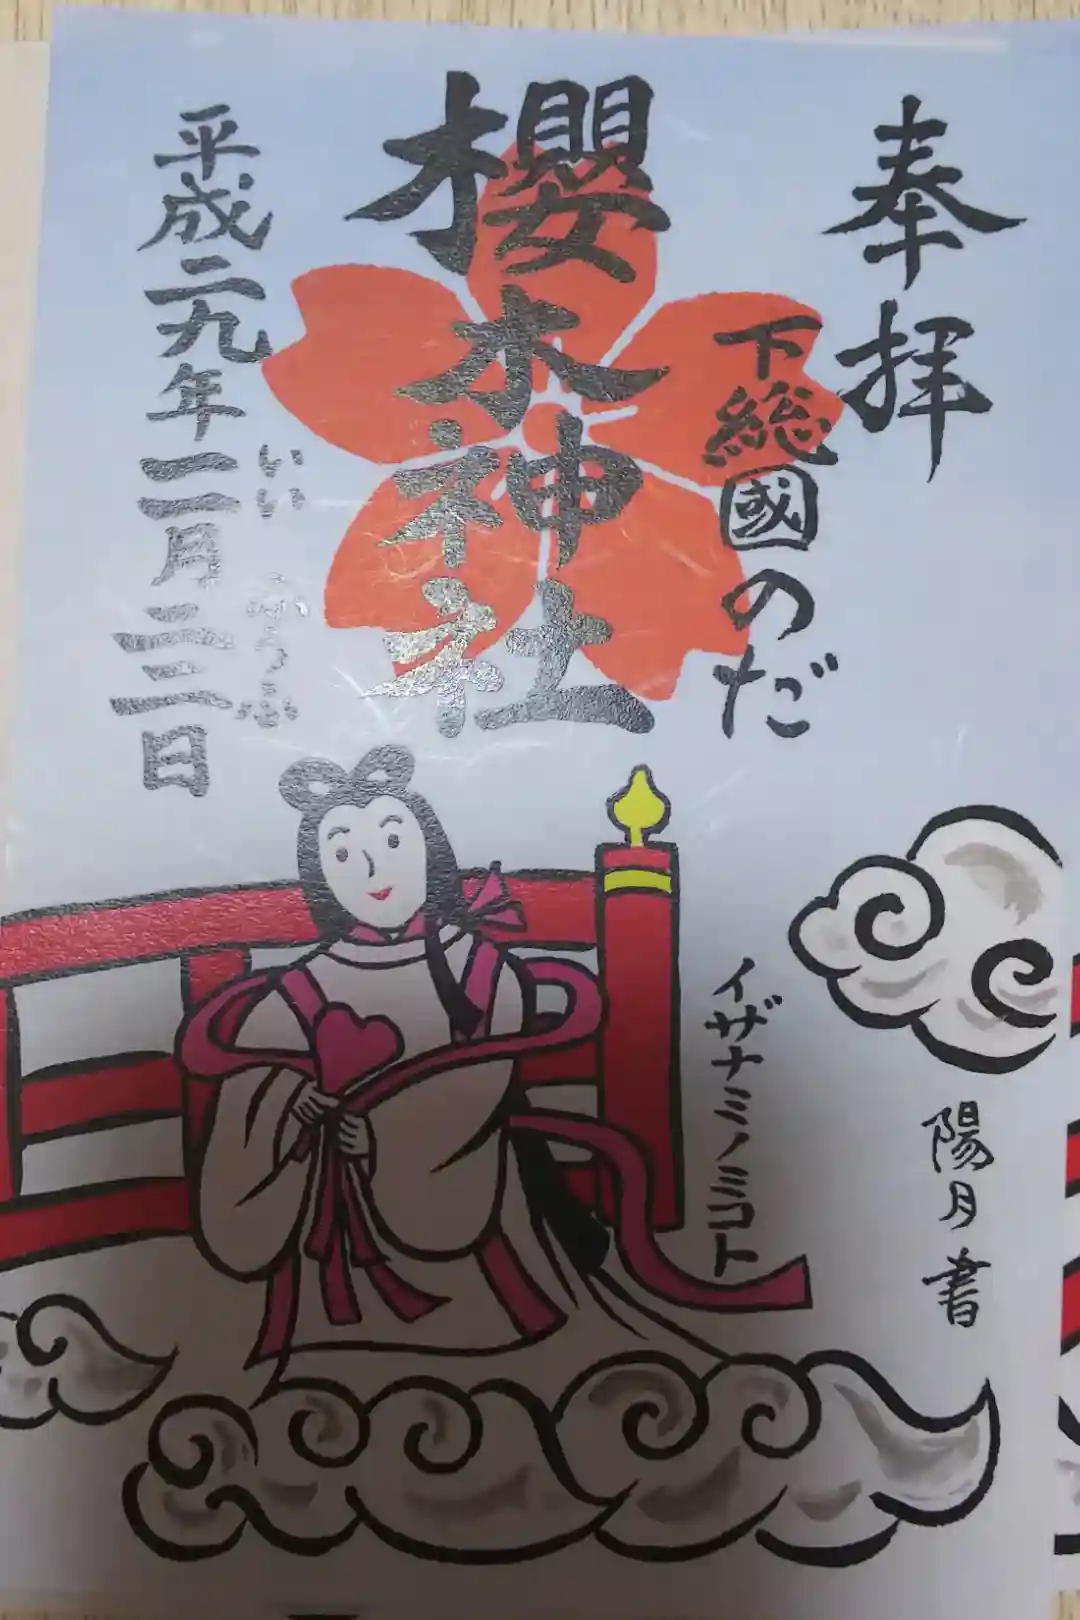 奉拝
下総國のだ
櫻木神社
いい ふうふ
平成二九年一一月二二日
イザナミノミコト
陽月書